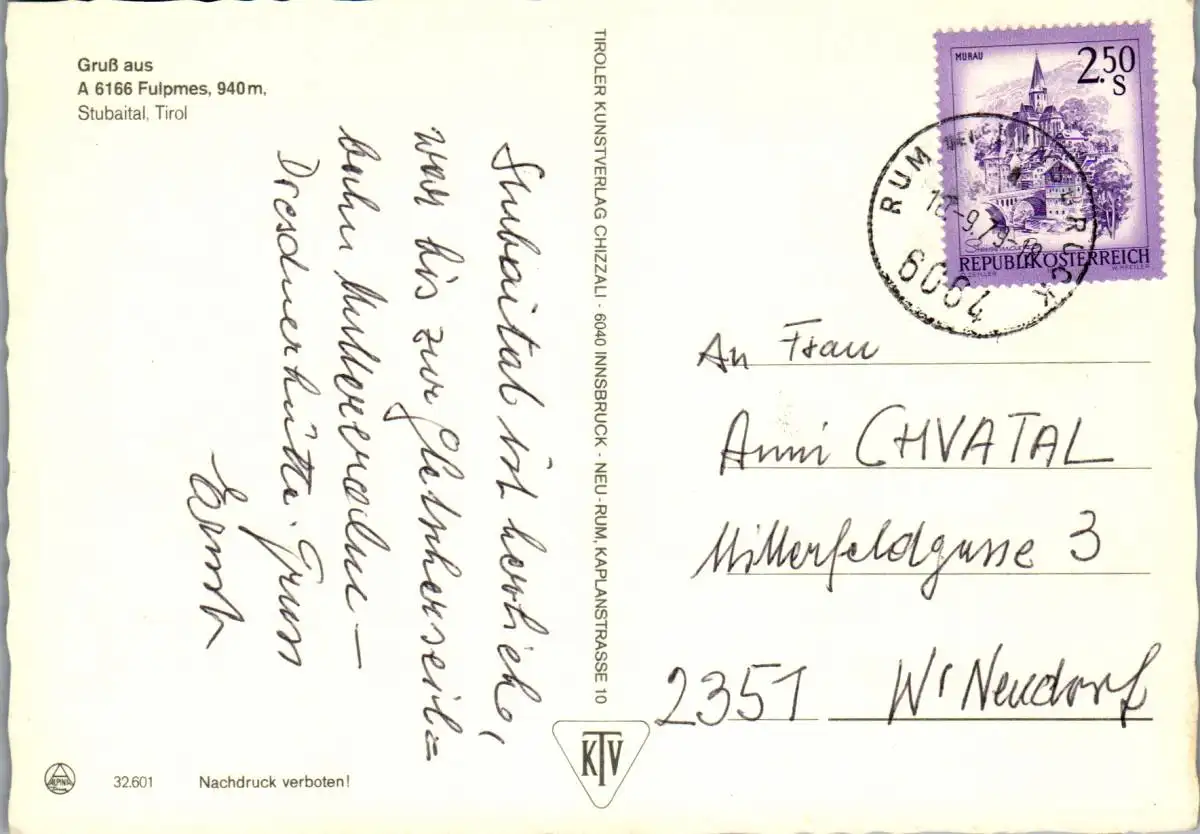 Gruß aus
A 6166 Fulpmes, 940 m,
Stubaital, Tirol
Stubaital ist herrlich,
war bis zur Gletscherseil=
bahn Mutterbergalm –
Dresdnerhütte. Gruss
Ernst
TIROLER KUNSTVERLAG CHIZZALI · 6040 INNSBRUCK · NEU-RUM, KAPLANSTRASSE 10
MURAU
2.50
S
Steiermark
REPUBLIK ÖSTERREICH
ZEILER
W. PFEILER
RUM BEI INNSBRUCK
-9.79-18
6064
An Frau
Anni CHVATAL
Millerfeldgasse 3
2351 Wr Neudorf
ALPINA
32.601
Nachdruck verboten!
KTV